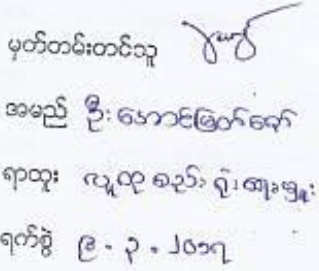 မှတ်တမ်းတင်သူ
အမည် ဦးအောင်မြတ်ကျော်
ရာထူး လူထုစည်းရုံးရေးမှူး
ရက်စွဲ ၉.၃.၂၀၁၇